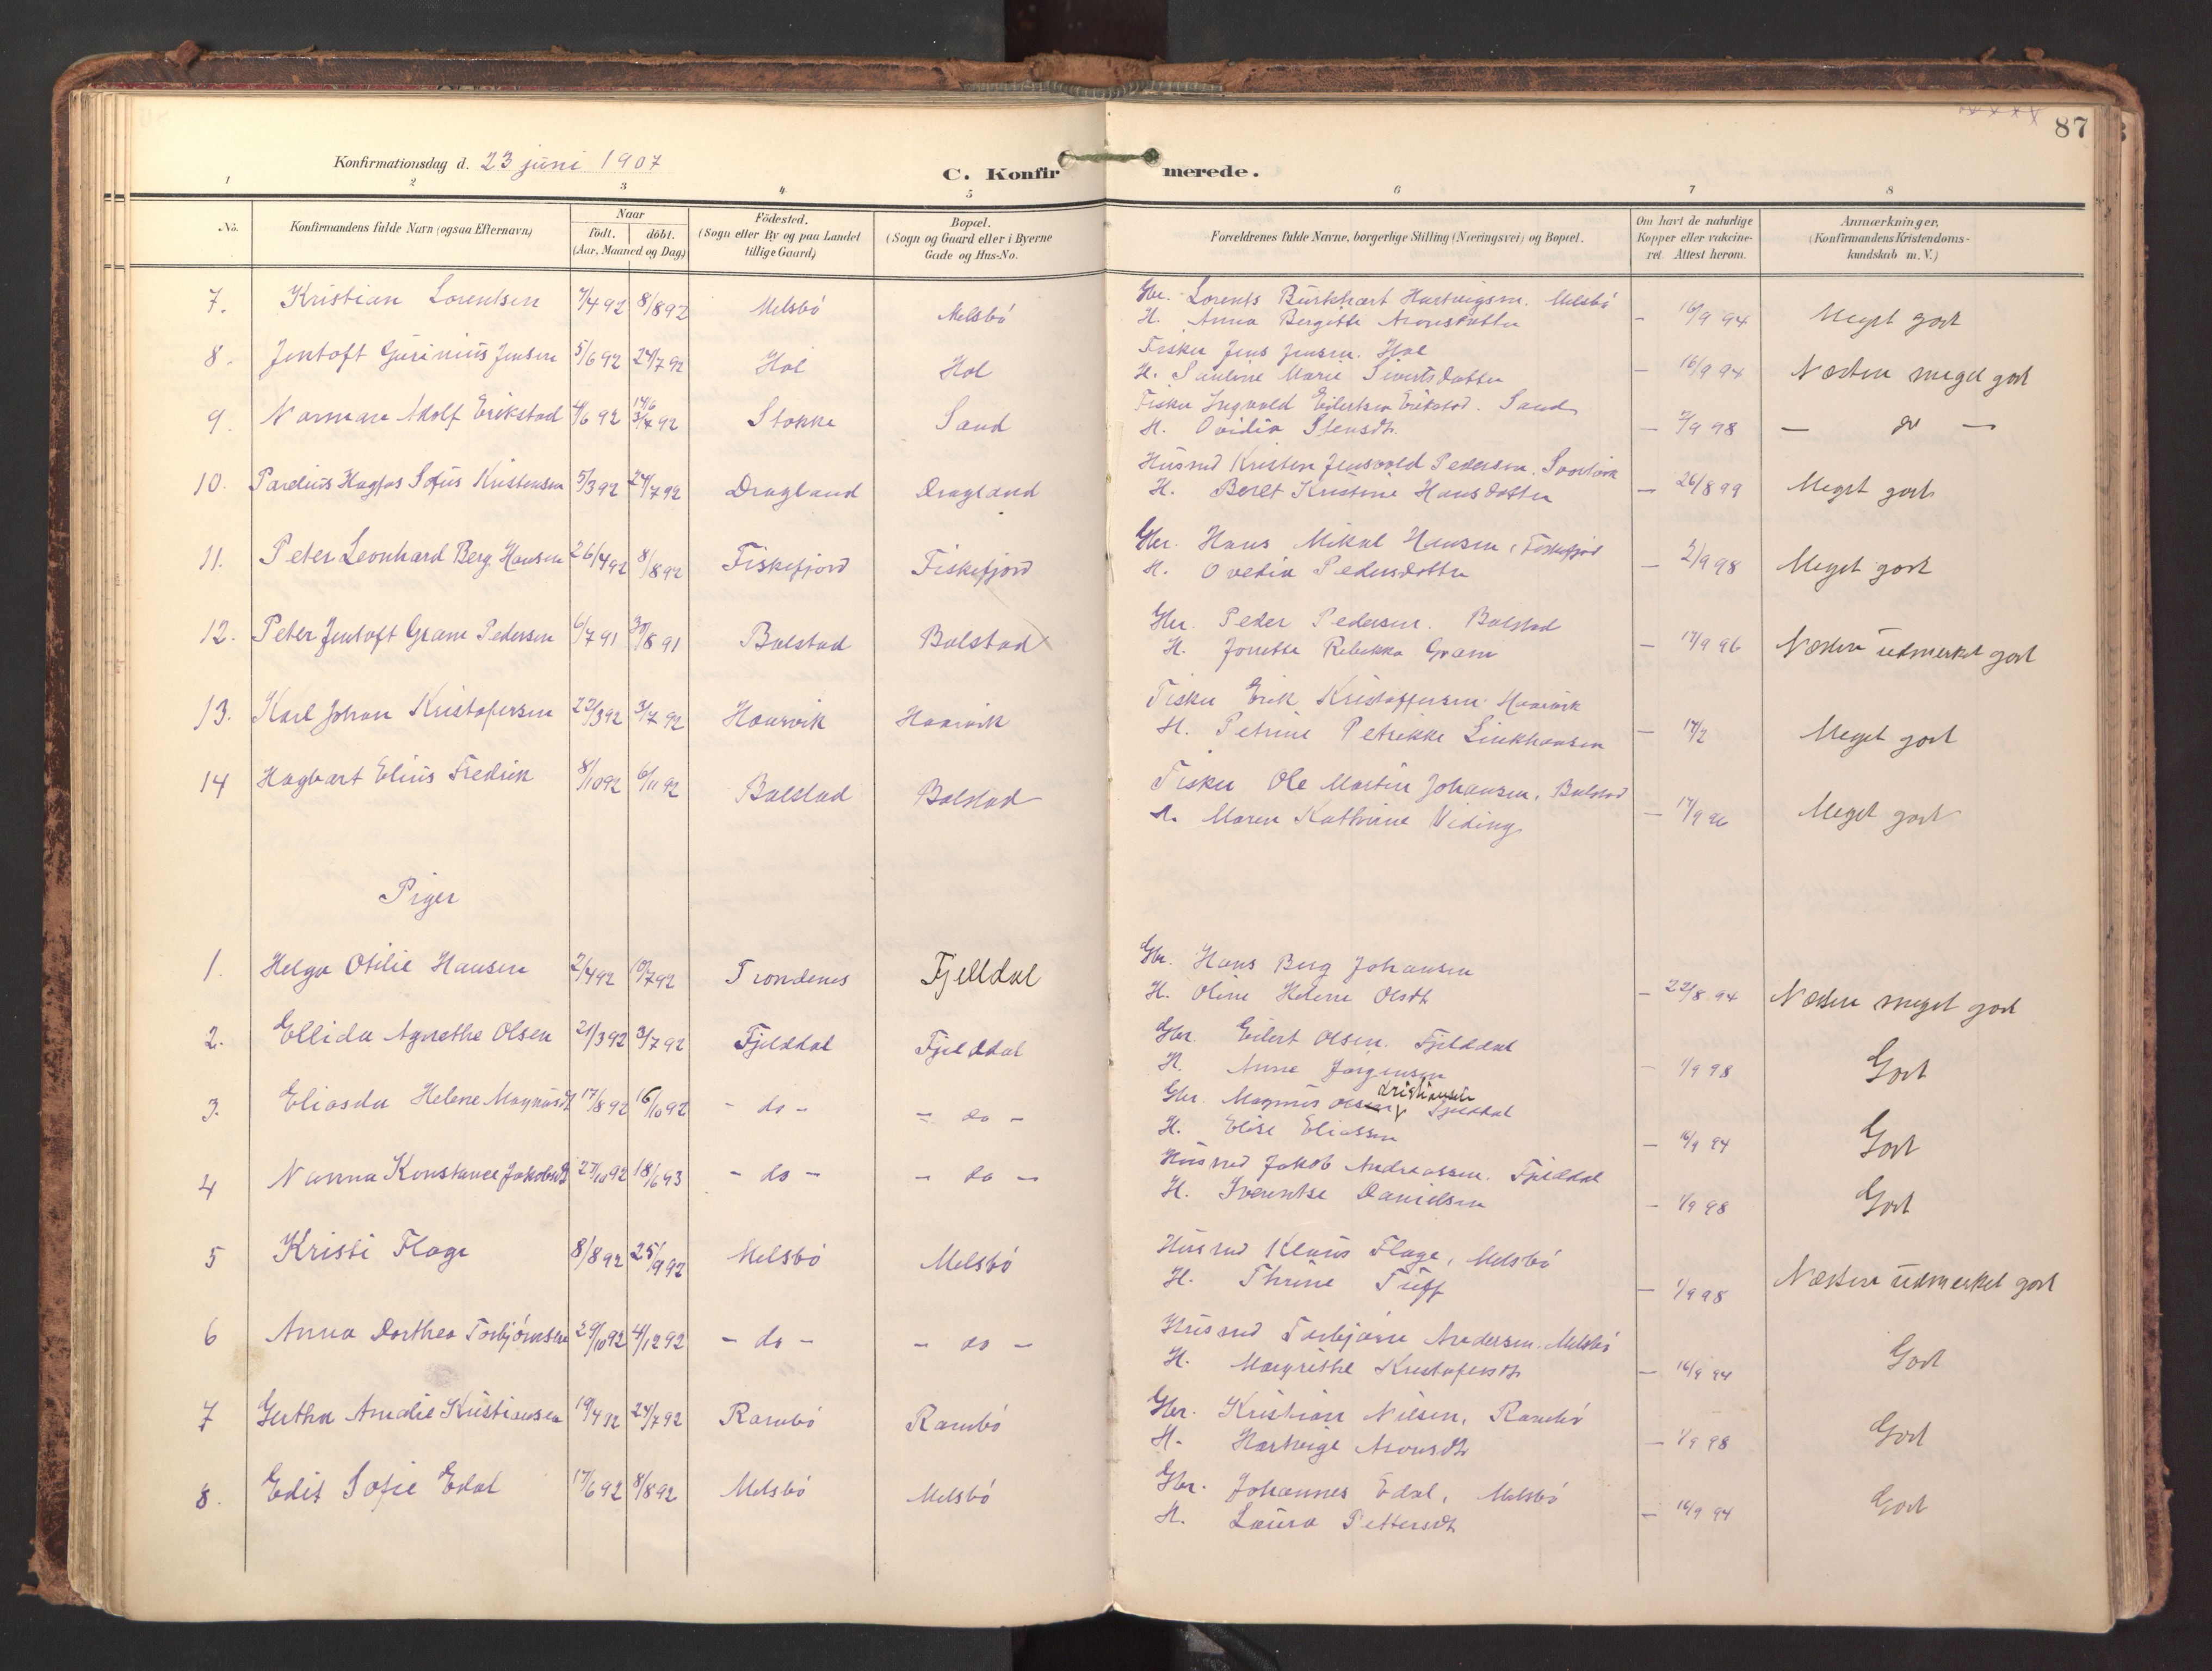 87
Konfirmationsdag d. 23 juni 1907
C. Konfirmerede.
1 2 3 4 5 6 7 8
No. Konfirmandens fulde Navn (ogsaa Efternavn) Naar født. døbt. (Aar, Maaned og Dag) Fødested. (Sogn eller By og paa Landet tillige Gaard) Bopæl. (Sogn og Gaard eller i Byerne Gade og Hus-No. Forældrenes fulde Navne, borgerlige Stilling (Næringsvei) og Bopæl. Om havt de naturlige Kopper eller vakcineret. Attest herom. Anmærkninger, (Konfirmandens Kristendomskundskab m. V.)
7. Kristian Lorentsen 7/4 92 8/8 92 Melsbö Melsbö Gbr. Lorents Burkhart Hartvigsen. Melsbö
H. Anna Bergitte Aronsdatter — 16/9 94 Meget godt
8. Jentoft Gurinius Jensen 5/6 92 24/7 92 Hol Hol Fisker Jens Jensen. Hol
H. Pauline Marie Sivertsdatter — 16/9 94 Næsten meget godt
9. Norman Adolf Erikstad 4/6 92 14/6 3/7 92 Stokke Sand Fisker Ingvald Eilertsen Erikstad. Sand
H. Ovidia Stensdtr. — 2/9 98 — do —
10. Pareliüs Hagfos Sofus Kristensen 5/3 92 24/7 92 Dragland Dragland Husmd Kristen Jensvold Pedersen.
H. Beret Kristine Hansdatter — 26/8 99 Meget godt
11. Peter Leonhard Berg Hansen 26/4 92 8/8 92 Fiskefjord Fiskefjord Gbr. Hans Mikal Hansen, Fiskefjord
H. Ovedia Pedersdatter — 2/9 98 Meget godt
12. Peter Jentoft Gram Pedersen 6/7 91 30/8 91 Balstad Balstad Gbr. Peder Pedersen. Balstad
H. Jonette Rebekka Gram — 17/9 96 Næsten udmerket godt
13. Karl Johan Kristofersen 22/3 92 3/7 92 Haarvik Haarvik Fisker Erik Kristoffersen Haarvik
H. Petrine Petrikke Linkhausen — 17/2 Meget godt
14 Hagbart Elius Fredrik 8/10 92 6/11 92 Balstad Balstad Fisker Ole Martin Johansen, Balstad
H. Maren Kathrine Viding — 17/9 96 Meget godt
Piger
1. Helga Otilie Hansen 2/4 92 10/7 92 Trondenes Fjelldal Gbr. Hans Berg Johansen
H. Oline Helene Olsdtr — 22/8 94 Næsten meget godt
2. Ellida Agnethe Olsen 21/3 92 3/7 92 Fjelddal Fjelddal Gbr. Eilert Olsen. Fjelddal
H. Anne Jörgensen — 1/9 98 Godt
3. Eliasda Helene Magnusdt 17/8 92 16/10 92 - do - - do - Gbr. Magnus Olsen Kristiansen Fjelddal
H. Elise Eliassen — 16/9 94 Godt
4 Nanna Konstance Jakobsdt 27/10 92 18/6 93 - do - - do - Husmd Jakob Andreassen. Fjelddal
H. Iverentse Danielsen — 1/9 98 Godt
5 Kristi Flage 8/8 92 25/9 92 Melsbö Melsbö Husmd Klaus Flage, Melsbö
H. Thrine Tuff — 1/9 98 Næsten udmerket godt
6 Anna Dorthea Torbjörnsen 29/10 92 4/12 92 - do - - do - Husmd Torbjörn Andersen. Melsbö
H. Margrethe Kristofersdtr — 16/9 94 Godt
7 Gertha Amalie Kristiansen 19/4 92 24/7 92 Rambö Rambö Gbr. Kristian Nilsen, Rambö
H. Hartvige Aronsdtr — 1/9 98 Godt
8. Edit Sofie Edal 17/6 92 8/8 92 Melsbö Melsbö Gbr. Johannes Edal, Melsbö
H. Laura Pettersdtr — 16/9 94 Godt